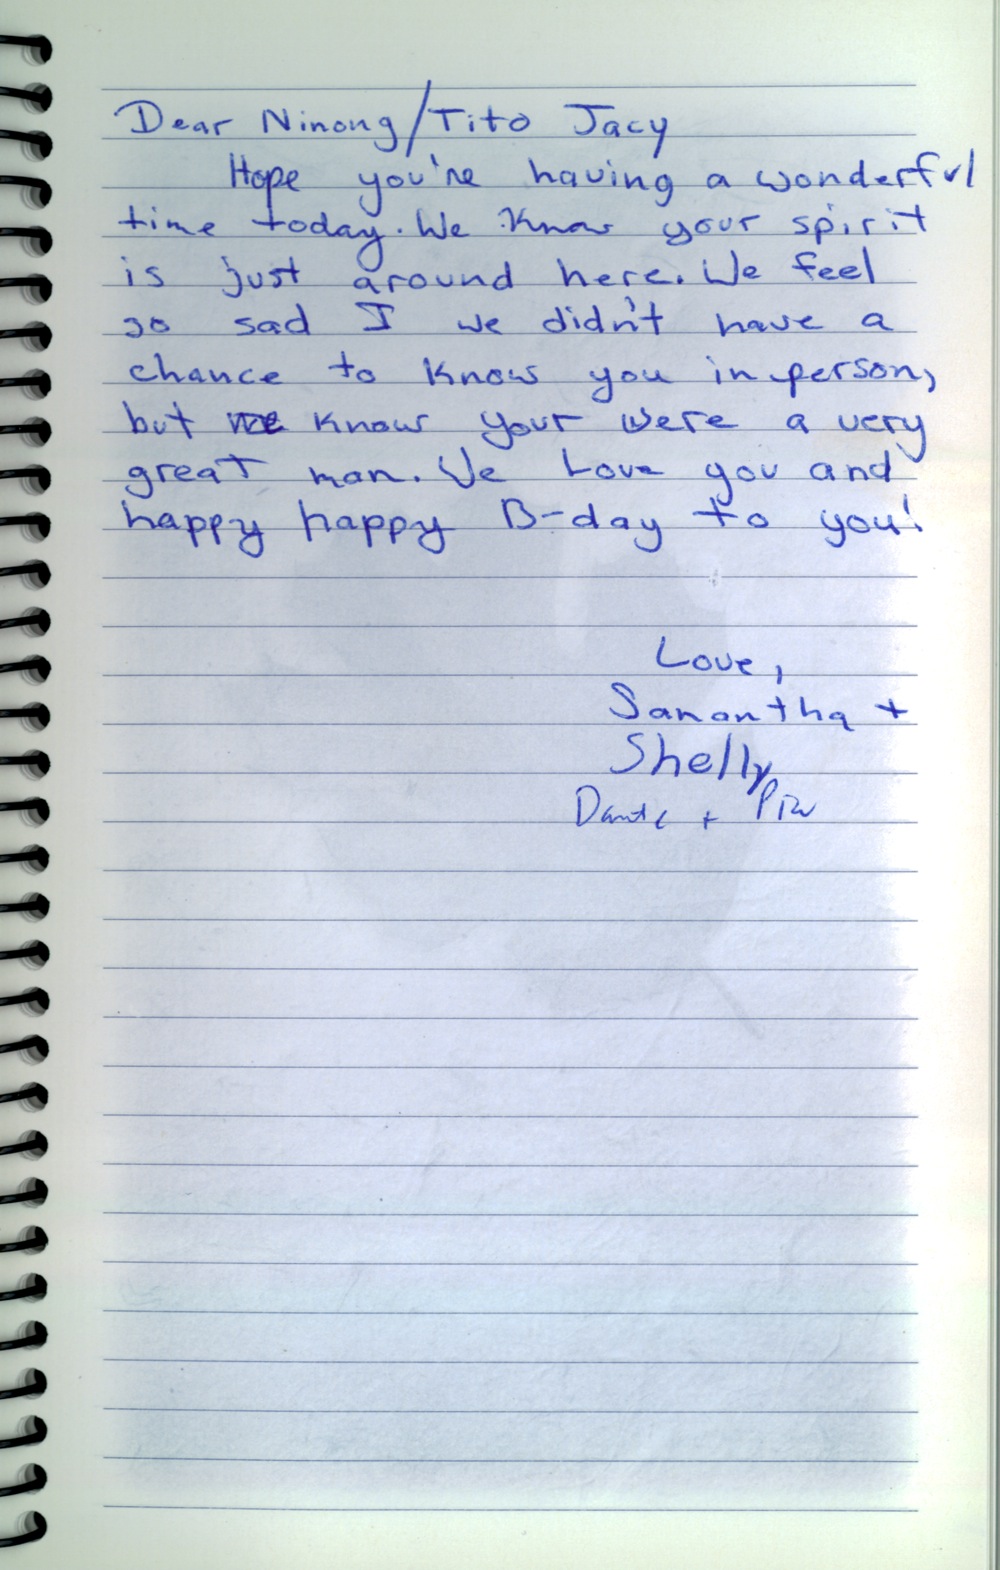 Dear Ninong/Tito Jacy
Hope you're having a wonderful
time today. We know your spirit
is just around here. We feel
so sad I we didn't have a
chance to know you in person,
but we know your were a very
great man. We Love you and
happy happy B-day to you!
Love,
Samantha +
Shelly
Dante +